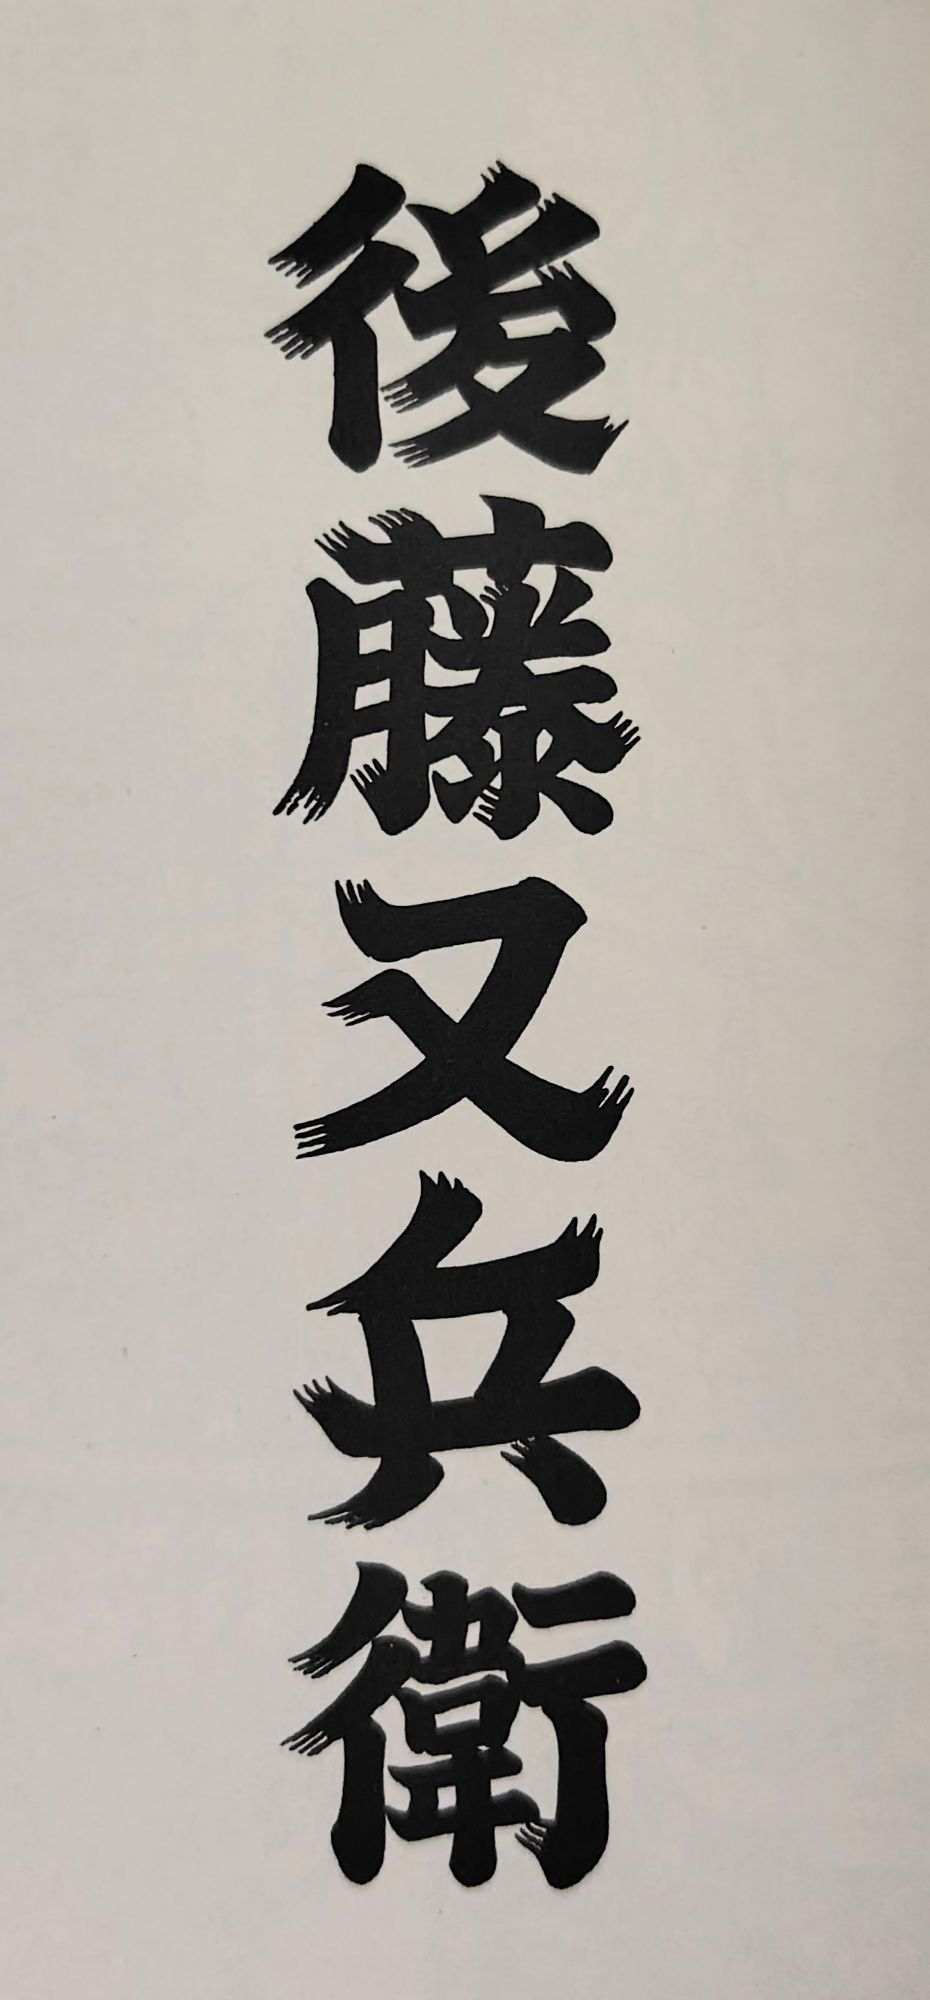 後藤又兵衛